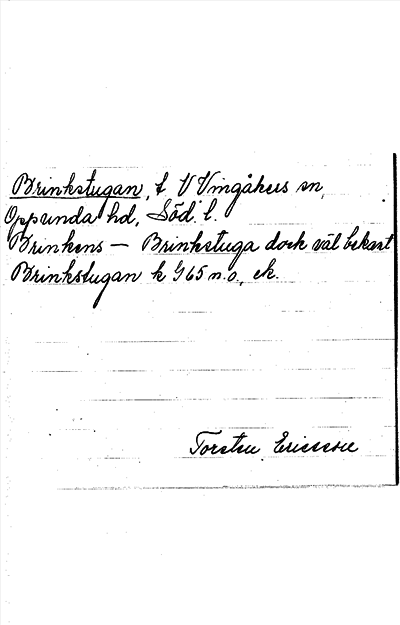 Brinkstugan, t V Vingåkers sn,
Oppunda hd, Söd. l.
Brinkens — Brinkstuga dock väl bekant
Brinkstugan k G65 n.o., ek.
Torsten Ericsson